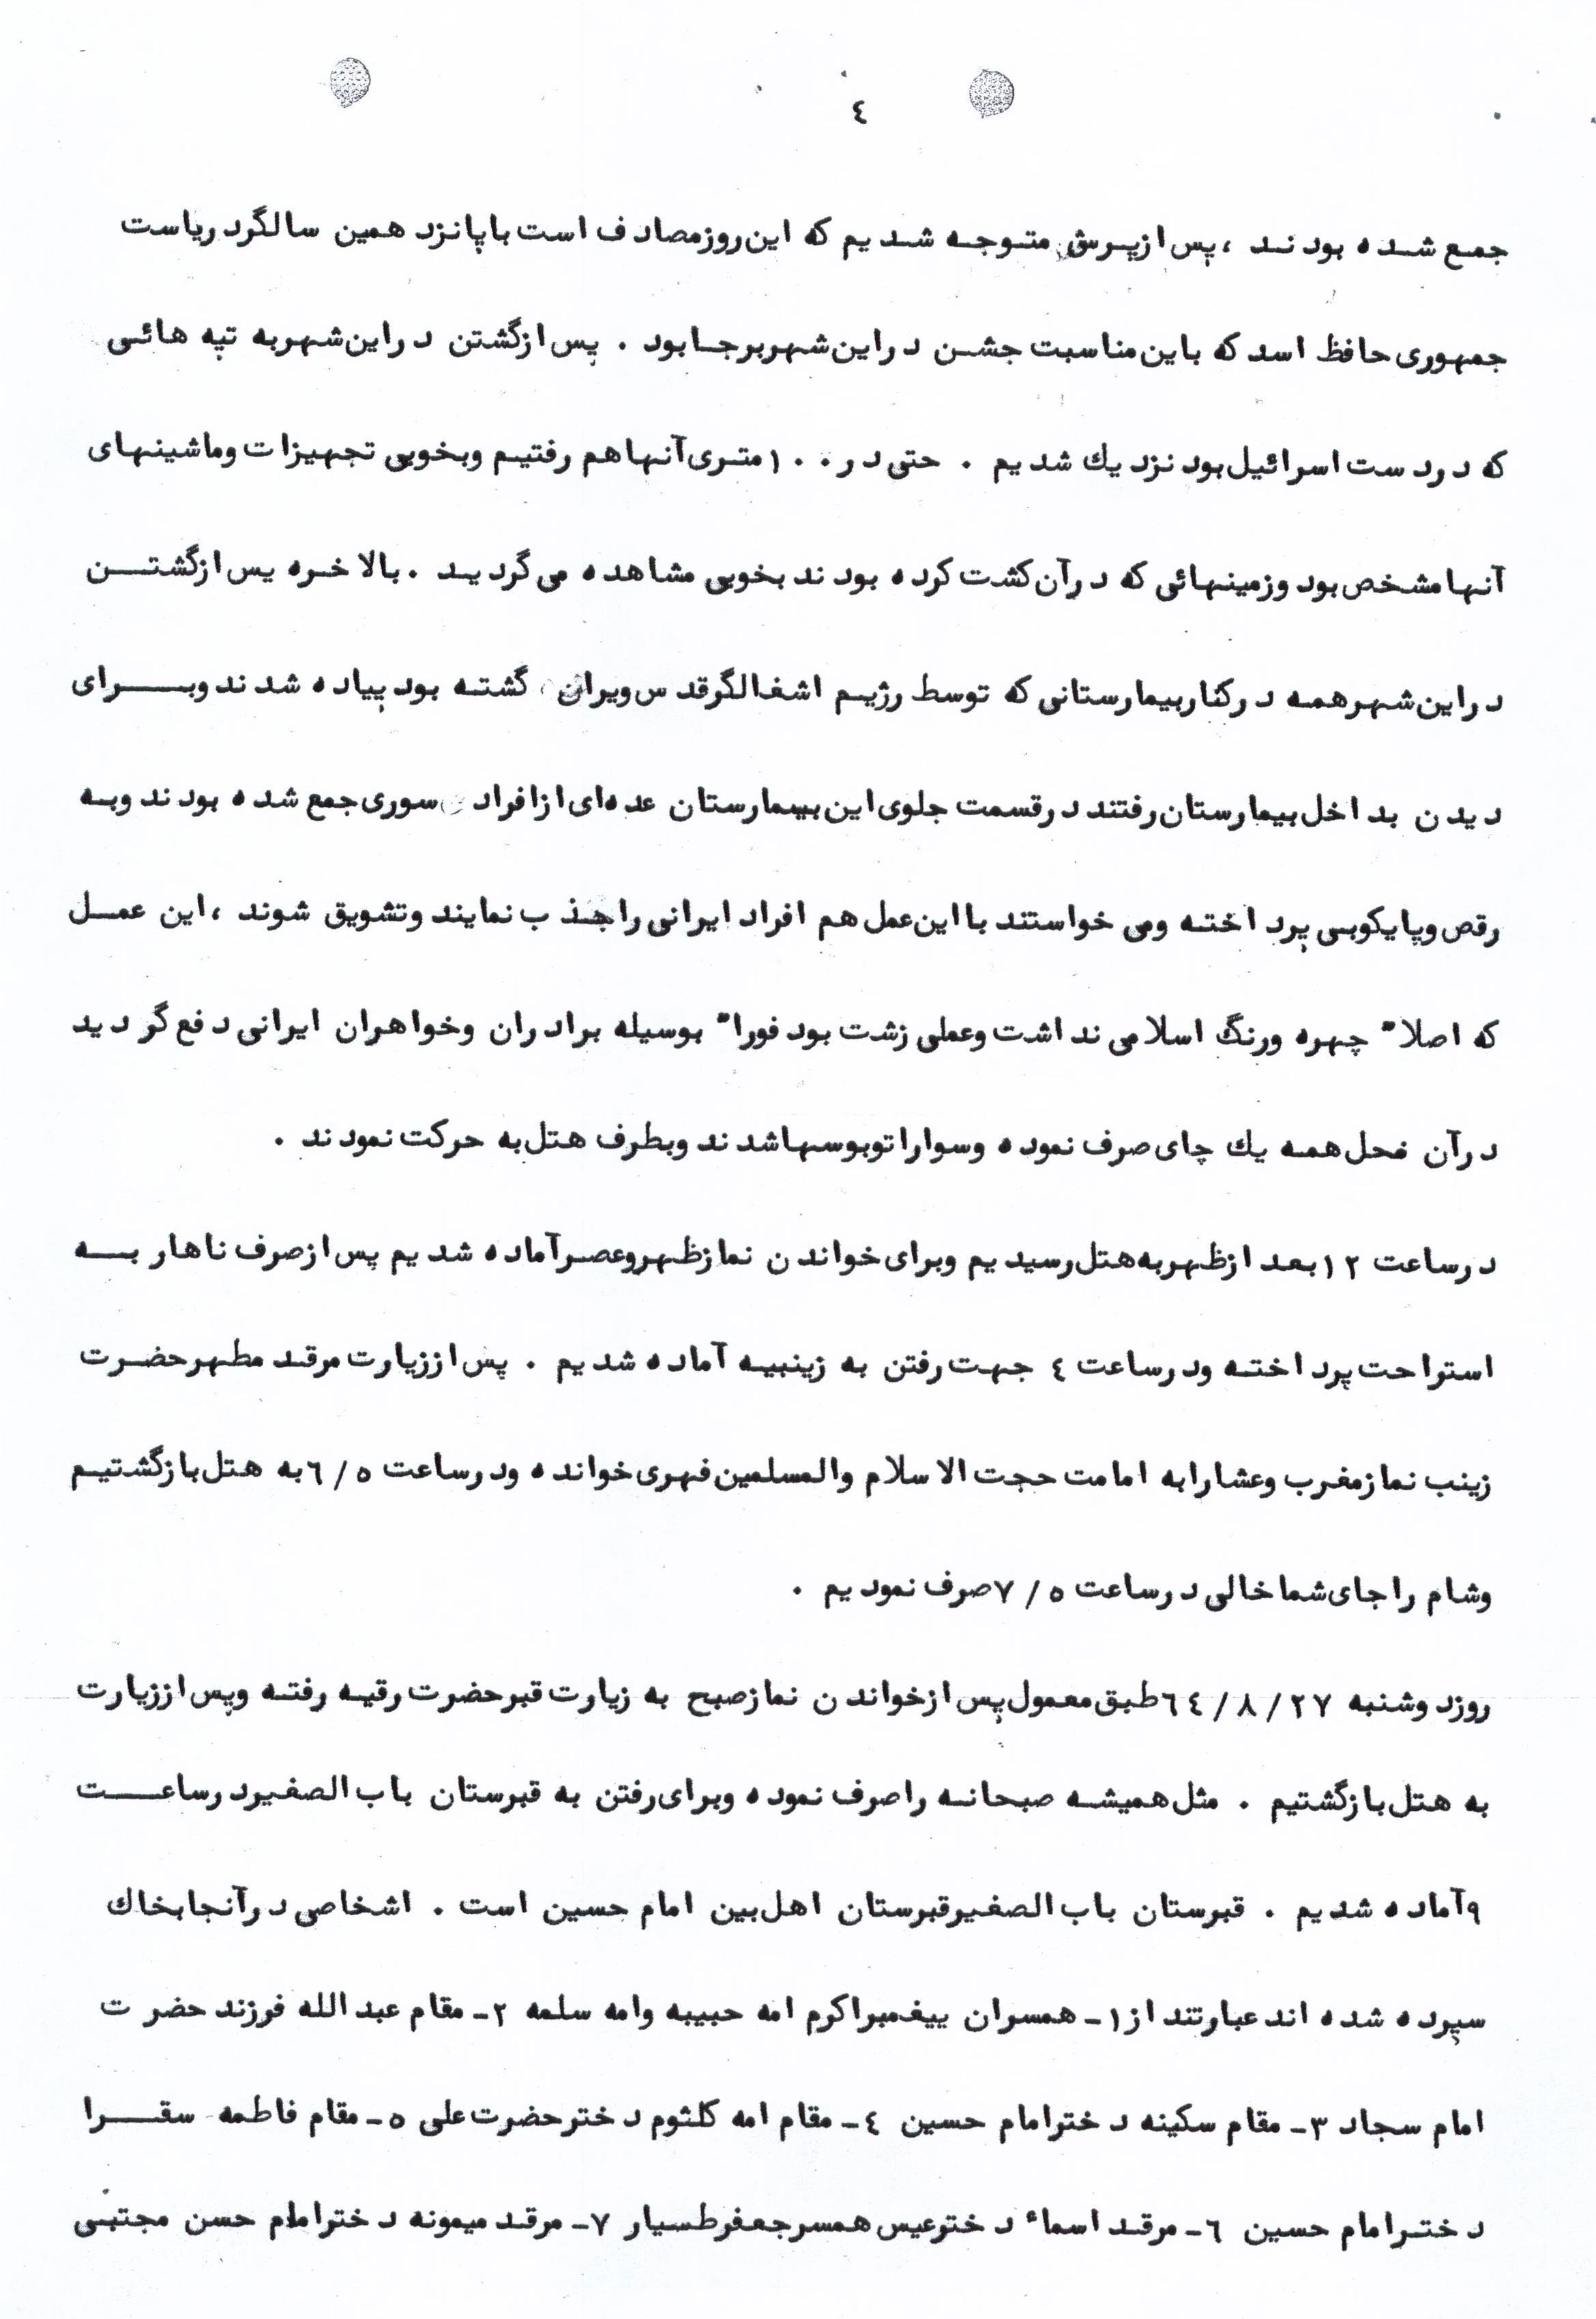 ٤
جمع شده بودند ، پس ازپرسش متوجه شدیم که این روزمصادف است باپانزدهمین سالگرد ریاست
جمهوری حافظ اسد که باین مناسبت جشن دراین شهربرجابود . پس ازگشتن دراین شهربه تپه هائی
که دردست اسرائیل بود نزدیك شدیم . حتی در ۱۰۰ متری آنهاهم رفتیم وبخوبی تجهیزات وماشینهای
آنهامشخص بود وزمینهائی که درآن کشت کرده بودند بخوبی مشاهده می گردید . بالاخره پس ازگشتن
دراین شهرهمه درکناربیمارستانی که توسط رژیم اشغالگرقدس ویران گشته بود پیاده شدند وبرای
دیدن بداخل بیمارستان رفتند درقسمت جلوی این بیمارستان عده‌ای ازافراد سوری جمع شده بودند وبه
رقص وپایکوبی پرداخته ومی خواستند بااین عمل هم افراد ایرانی راجذب نمایند وتشویق شوند ، این عمل
که اصلا" چهره ورنگ اسلامی نداشت وعملی زشت بود فورا" بوسیله برادران وخواهران ایرانی دفع گردید
درآن محل همه یك چای صرف نموده وسواراتوبوسهاشدند وبطرف هتل به حرکت نمودند .
درساعت ۱۲بعد ازظهربه هتل رسیدیم وبرای خواندن نمازظهروعصرآماده شدیم پس ازصرف ناهار به
استراحت پرداخته ودرساعت ٤ جهت رفتن به زینبیه آماده شدیم . پس اززیارت مرقد مطهرحضرت
زینب نمازمغرب وعشارابه امامت حجت الاسلام والمسلمین فهری خوانده ودرساعت ٦/٥به هتل بازگشتیم
وشام راجای شماخالی درساعت ۷/٥صرف نمودیم .
روزدوشنبه ٦٤/۸/۲۷طبق معمول پس ازخواندن نمازصبح به زیارت قبرحضرت رقیه رفته وپس اززیارت
به هتل بازگشتیم . مثل همیشه صبحانه راصرف نموده وبرای رفتن به قبرستان باب الصغیردرساعت
۹آماده شدیم . قبرستان باب الصغیرقبرستان اهل بین امام حسین است . اشخاصی درآنجابخاك
سپرده شده اند عبارتند از۱- همسران پیغمبراکرم امه حبیبه وامه سلمه ۲- مقام عبدالله فرزند حضرت
امام سجاد ۳- مقام سکینه دخترامام حسین ٤- مقام امه کلثوم دخترحضرت علی ٥- مقام فاطمه سقرا
دخترامام حسین ٦- مرقد اسماء دخترعیس همسرجعفرطسیار ۷- مرقد میمونه دخترامام حسن مجتبی